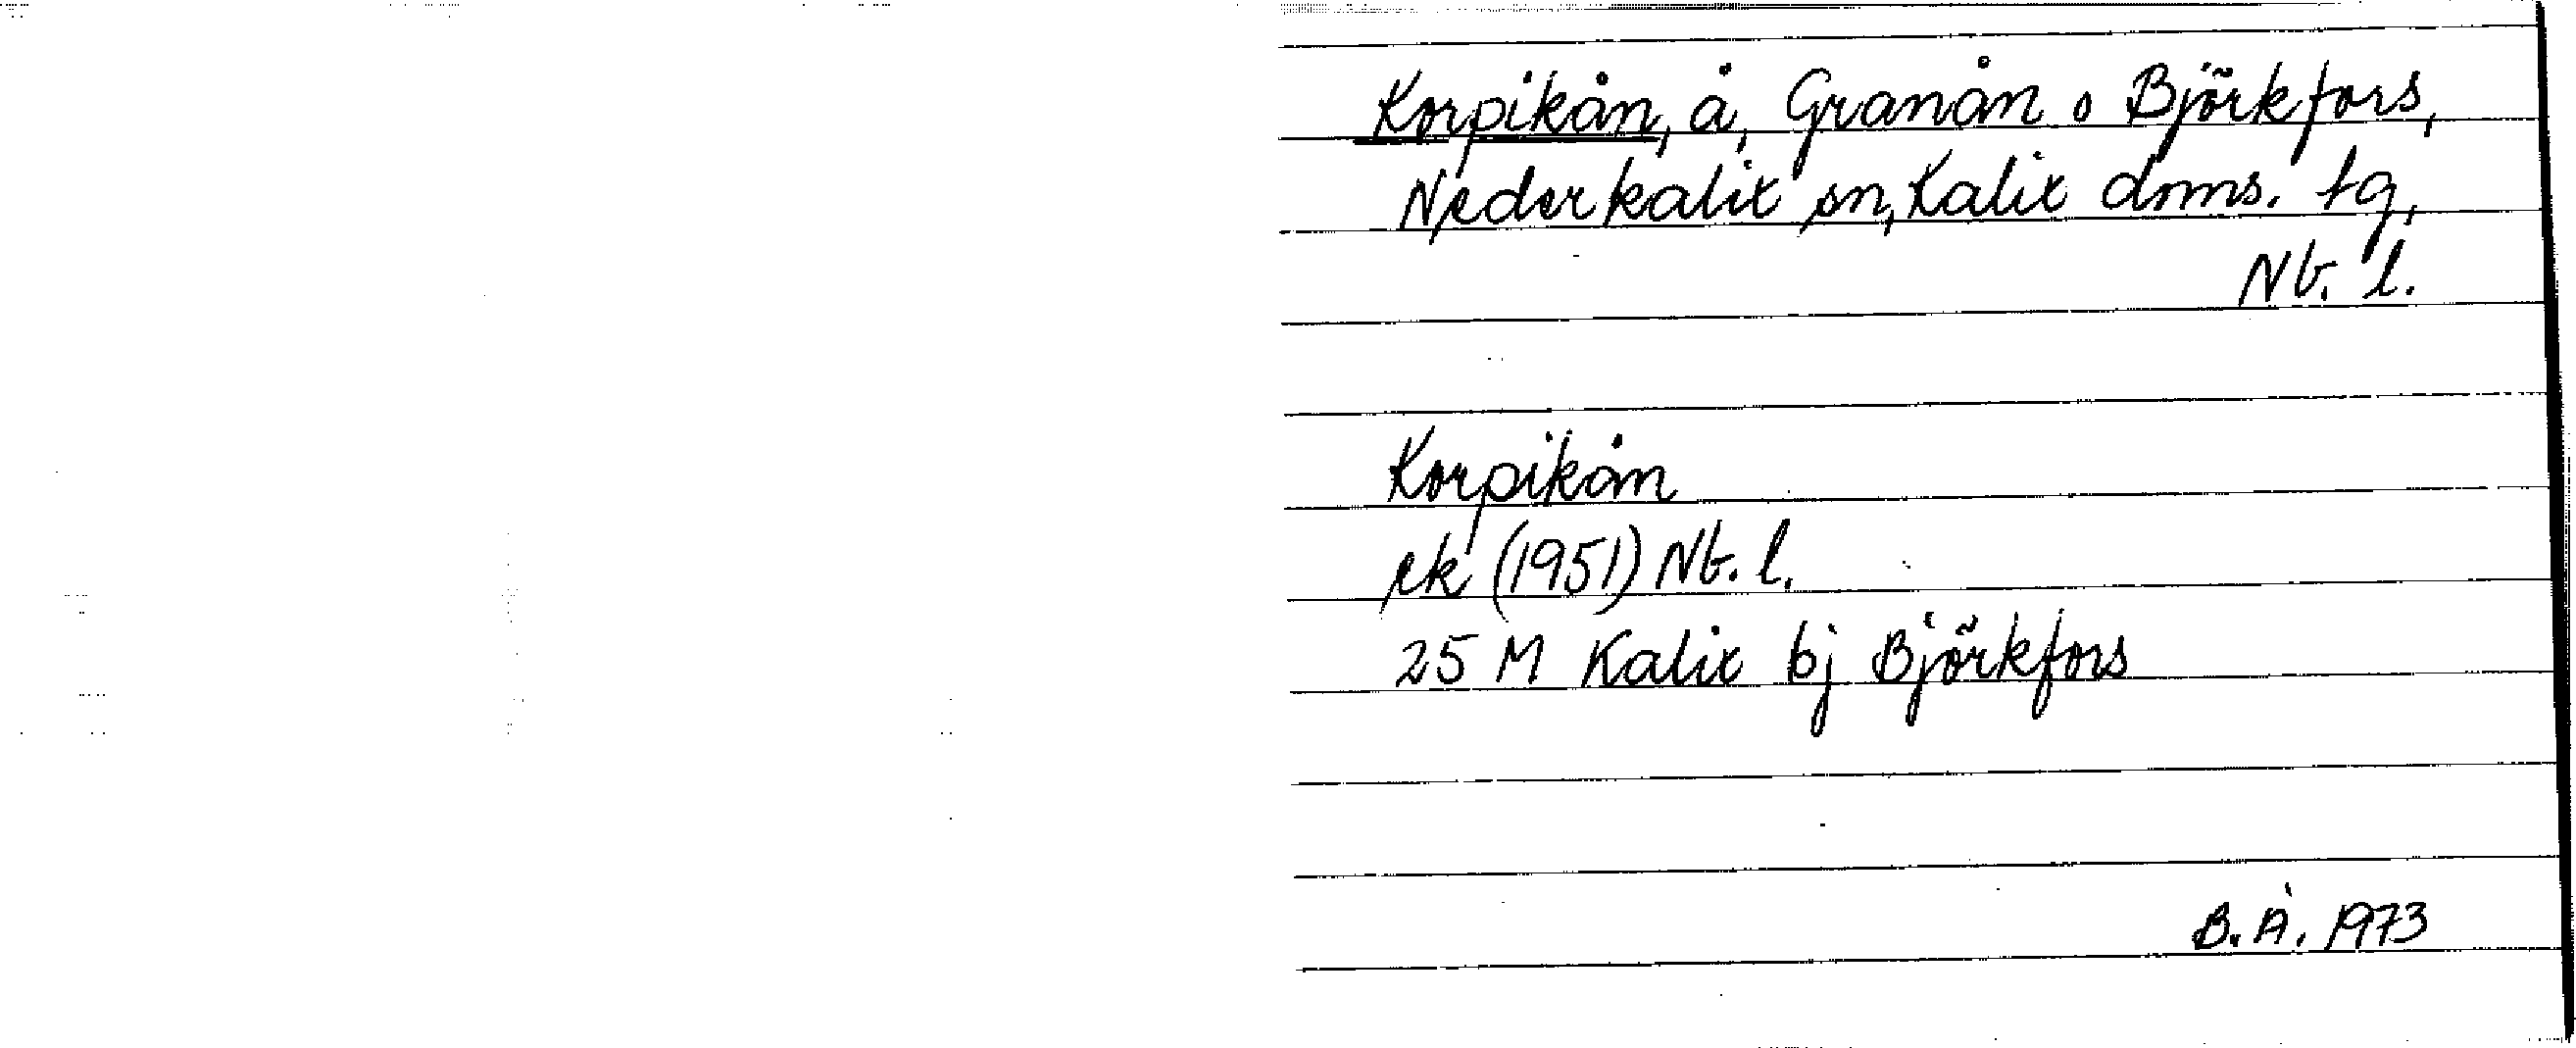 Korpikån, å, Granån o Björkfors,
Nederkalix sn, Kalix doms. tg,
Nb. l.
Korpikån
ek (1951) Nb. l.
25 M Kalix bj Björkfors
B.Å. 1973